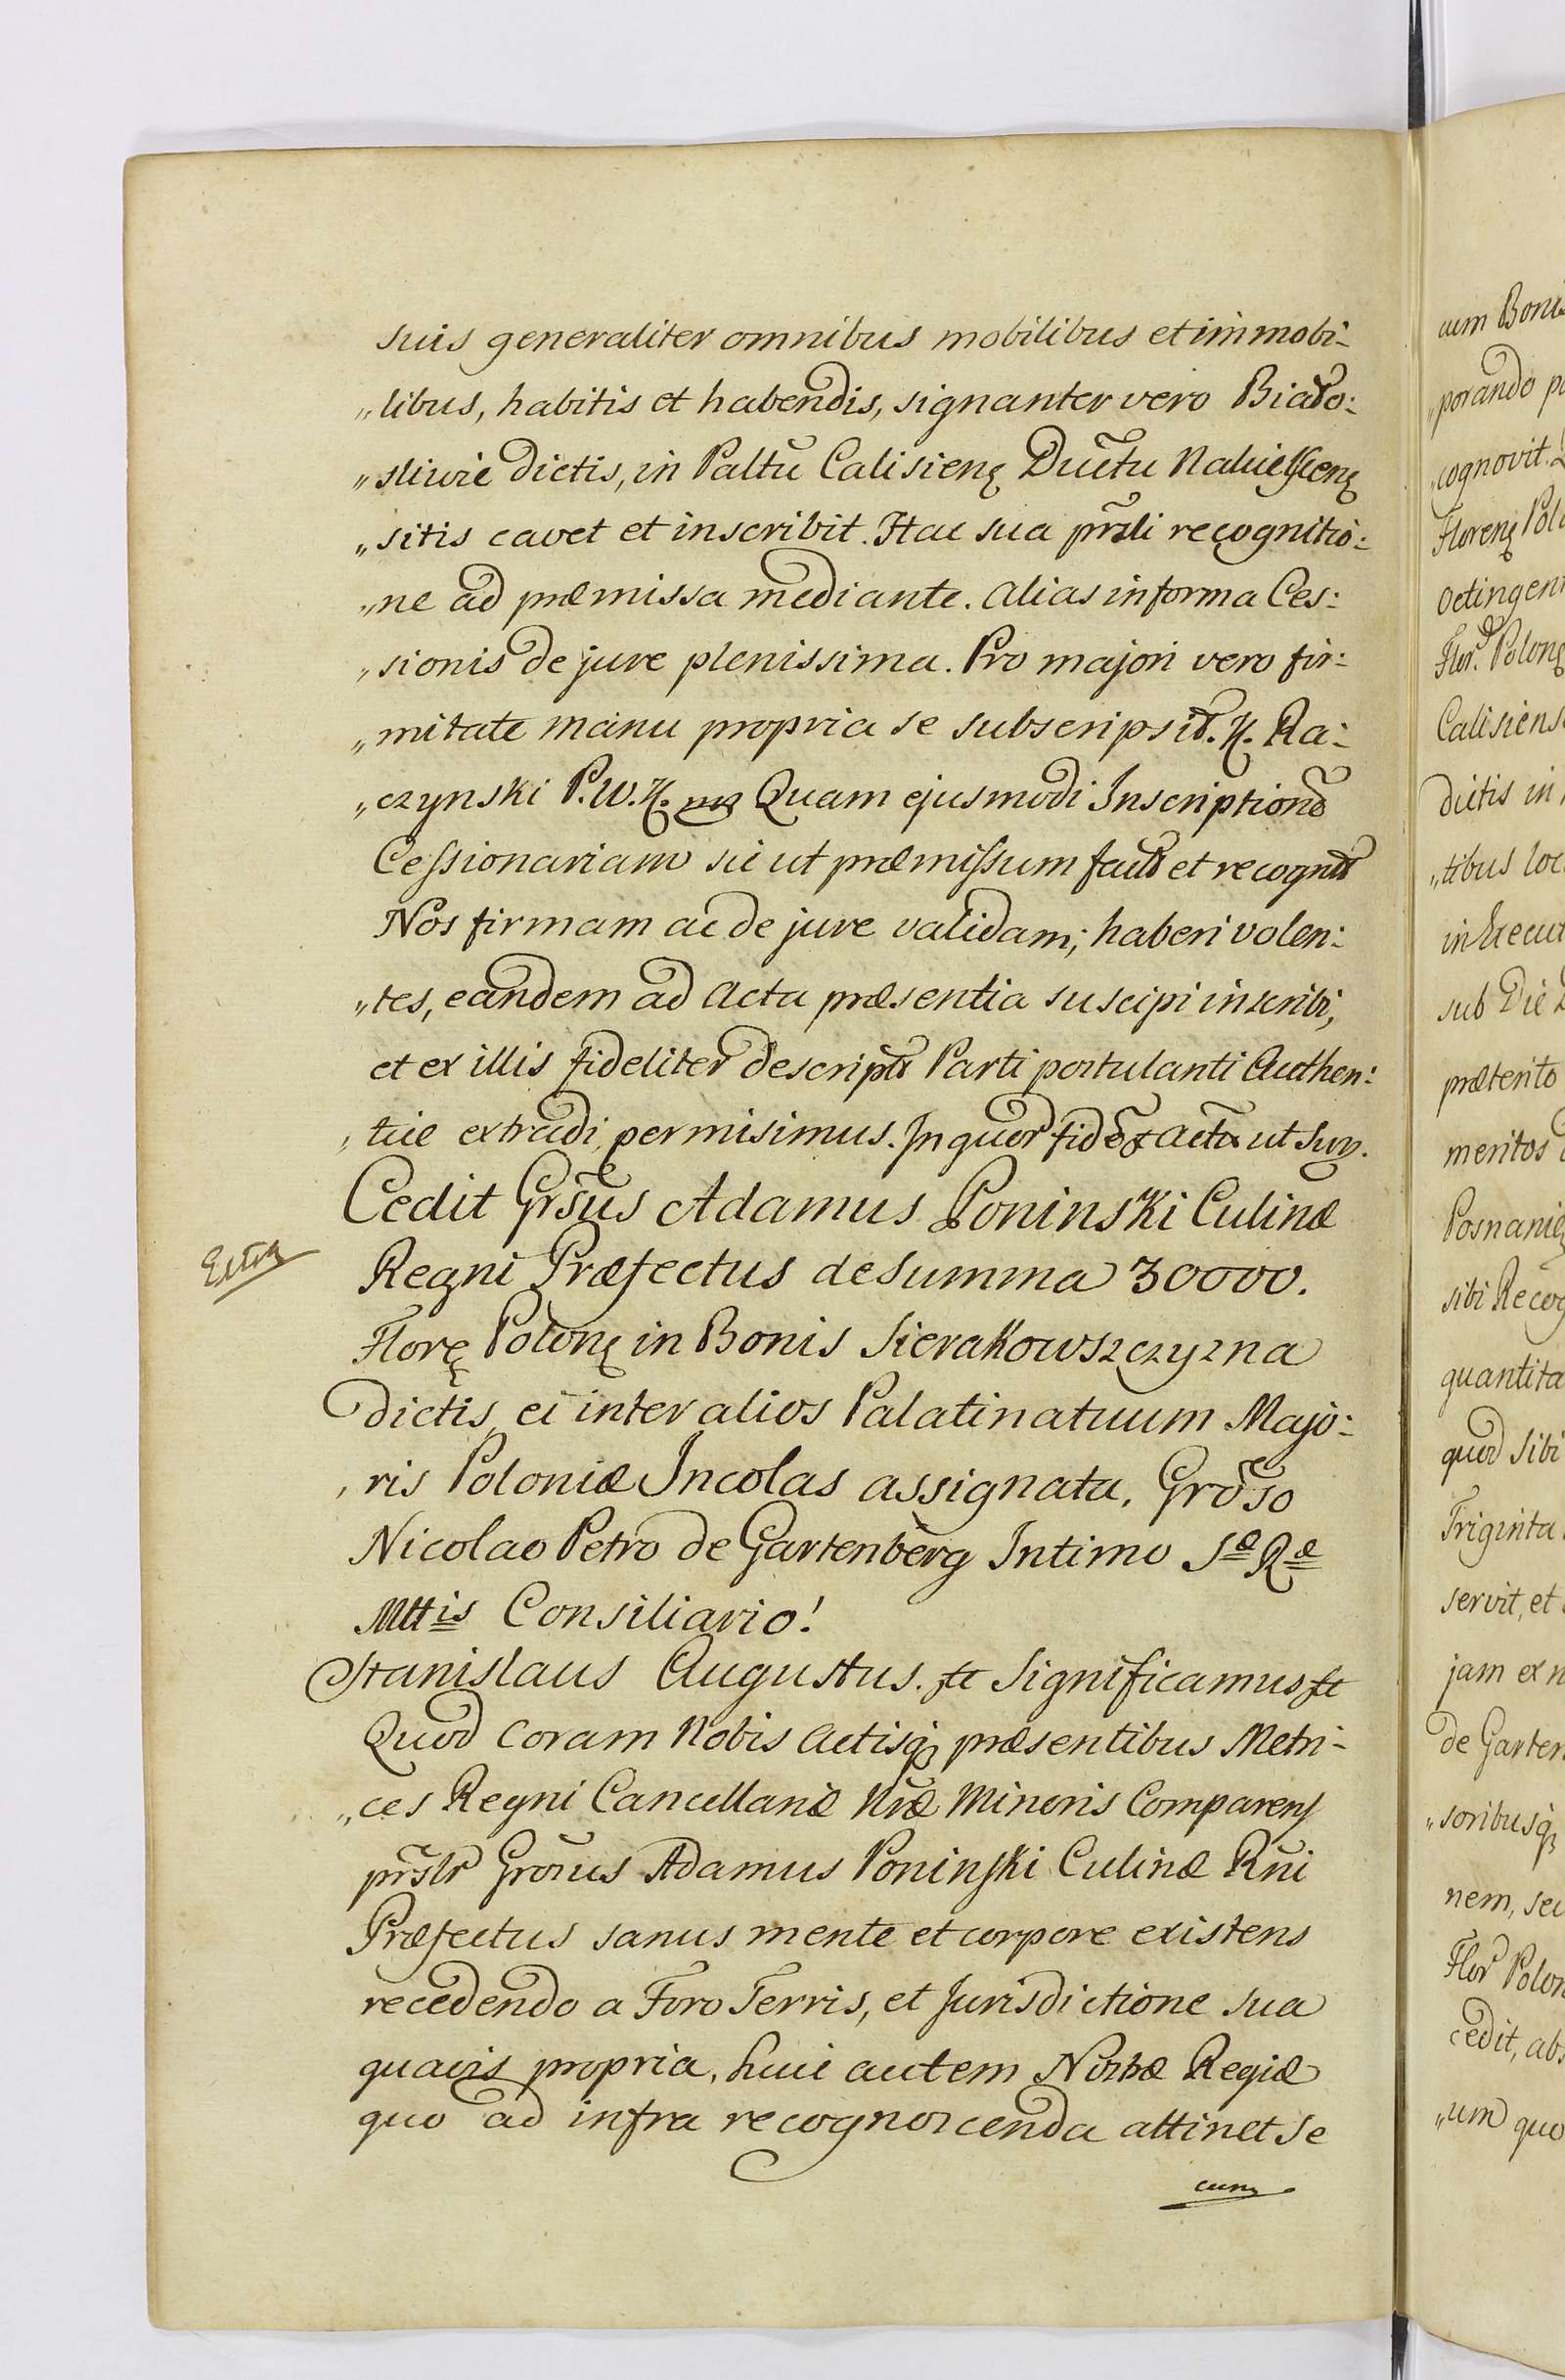 suis generaliter omnibus mobilibus et immobi-
„libus, habitis et habendis, signanter vero Biało:
„sliwie dictis, in Paltũ Calisienę Ductu Nakielscenę
„sitis cavet et inscribit. Hac sua pr̃sli recognitio:
„ne ad præmissa mediante. alias in forma Ces:
„sionis de jure plenissima. Pro majori vero fir:
„mitate manu propria se subscripsit. K. Ra:
„czynski P.W.K. mp Quam ejusmodi Inscriptionẽ
Cessionariam sic ut præmissum factã et recognitã
Nos firmam ac de jure validam; haberi volen:
„tes, eandem ad Acta præsentia suscipi inscribi,
et ex illis fideliter descriptã Parti postulanti Authen:
„tice extradi permisimus. In quor̃ fidẽ & Actũ ut Sup.
Cedit Gr̃sus Adamus Poninski Culinæ
Regni Præfectus de summa 30000.
Extra
Florę Polonę in Bonis Sierakowszczyzna
dictis, ei inter alios Palatinatuum Majo:
„ris Poloniæ Incolas assignata, Gro͠so
Nicolao Petro de Gartenberg Intimo Sæ Ræ
Mttis Consiliario!
Stanislaus Augustus. &c Significamus &c
Quod coram Nobis Actisq, præsentibus Metri-
„ces Regni Cancellariæ Nr̃æ Minoris Comparens
pr̃slr Grosus Adamus Poninski Culinæ Rñi
Præfectus sanus mente et corpore existens
recedendo a Foro Terris, et Jurisdictione sua
quavis propria, huic autem Nostræ Regiæ
quo ad infra recognoscenda attinet se
cum
cum Bonis
„porando
cognovit.
Florenę Pol
Oetingen
Flor. Polonę
Calisiens
dictis in
„tibus loc
in Execut
sub Die
præterito
meritos
Posnanię
sibi Recog
quantita
quod sibi
Triginta
servit, et
jam ex n
de Garten
„soribusq,
nem, sec
Flor Polon
cedit, abs
„um quo